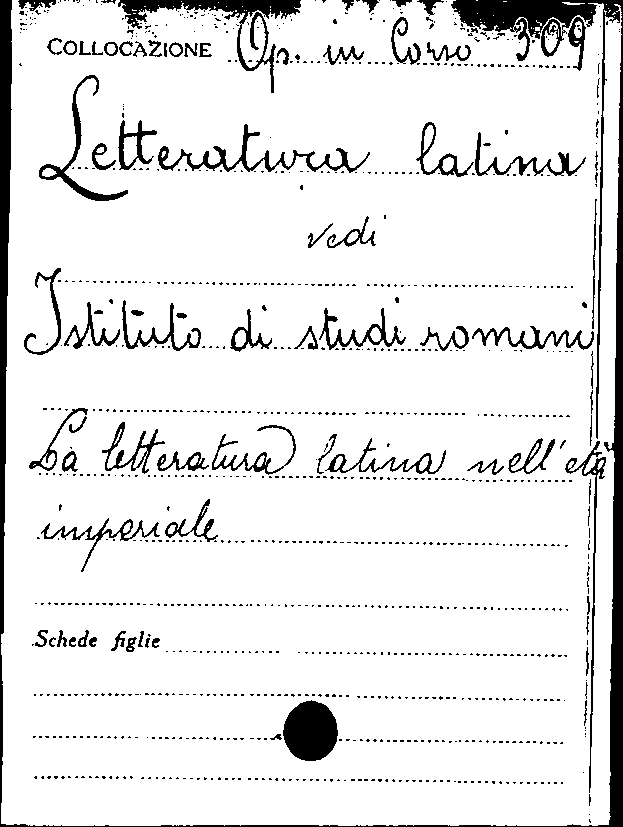 COLLOCAZIONE Op. in Corso 309
Letteratura latina
vedi
Istituto di studi romani
La letteratura latina nell'età
imperiale
Schede figlie